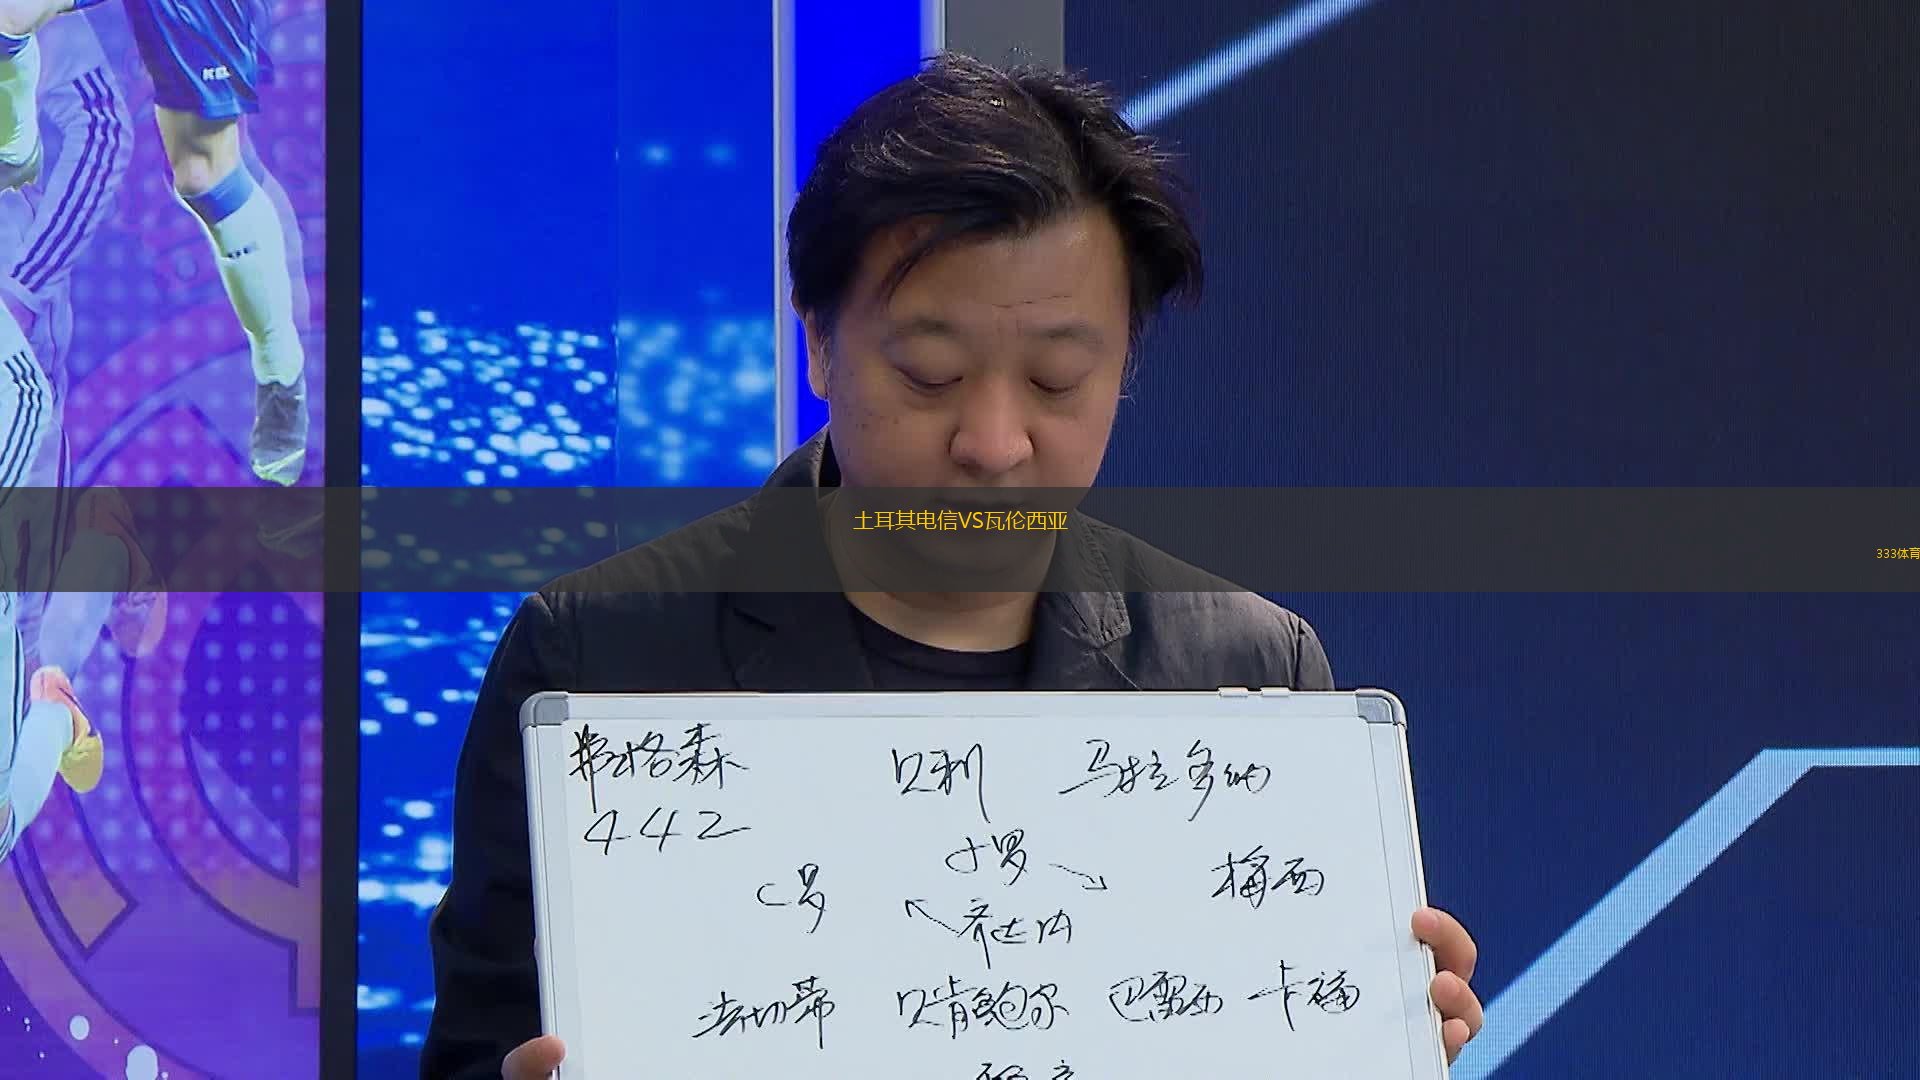 土耳其电信VS瓦伦西亚
333体育
弗格森 贝利 马拉多纳
442
小罗
C罗 梅西
齐达内
法切蒂 贝肯鲍尔 巴雷西 卡福